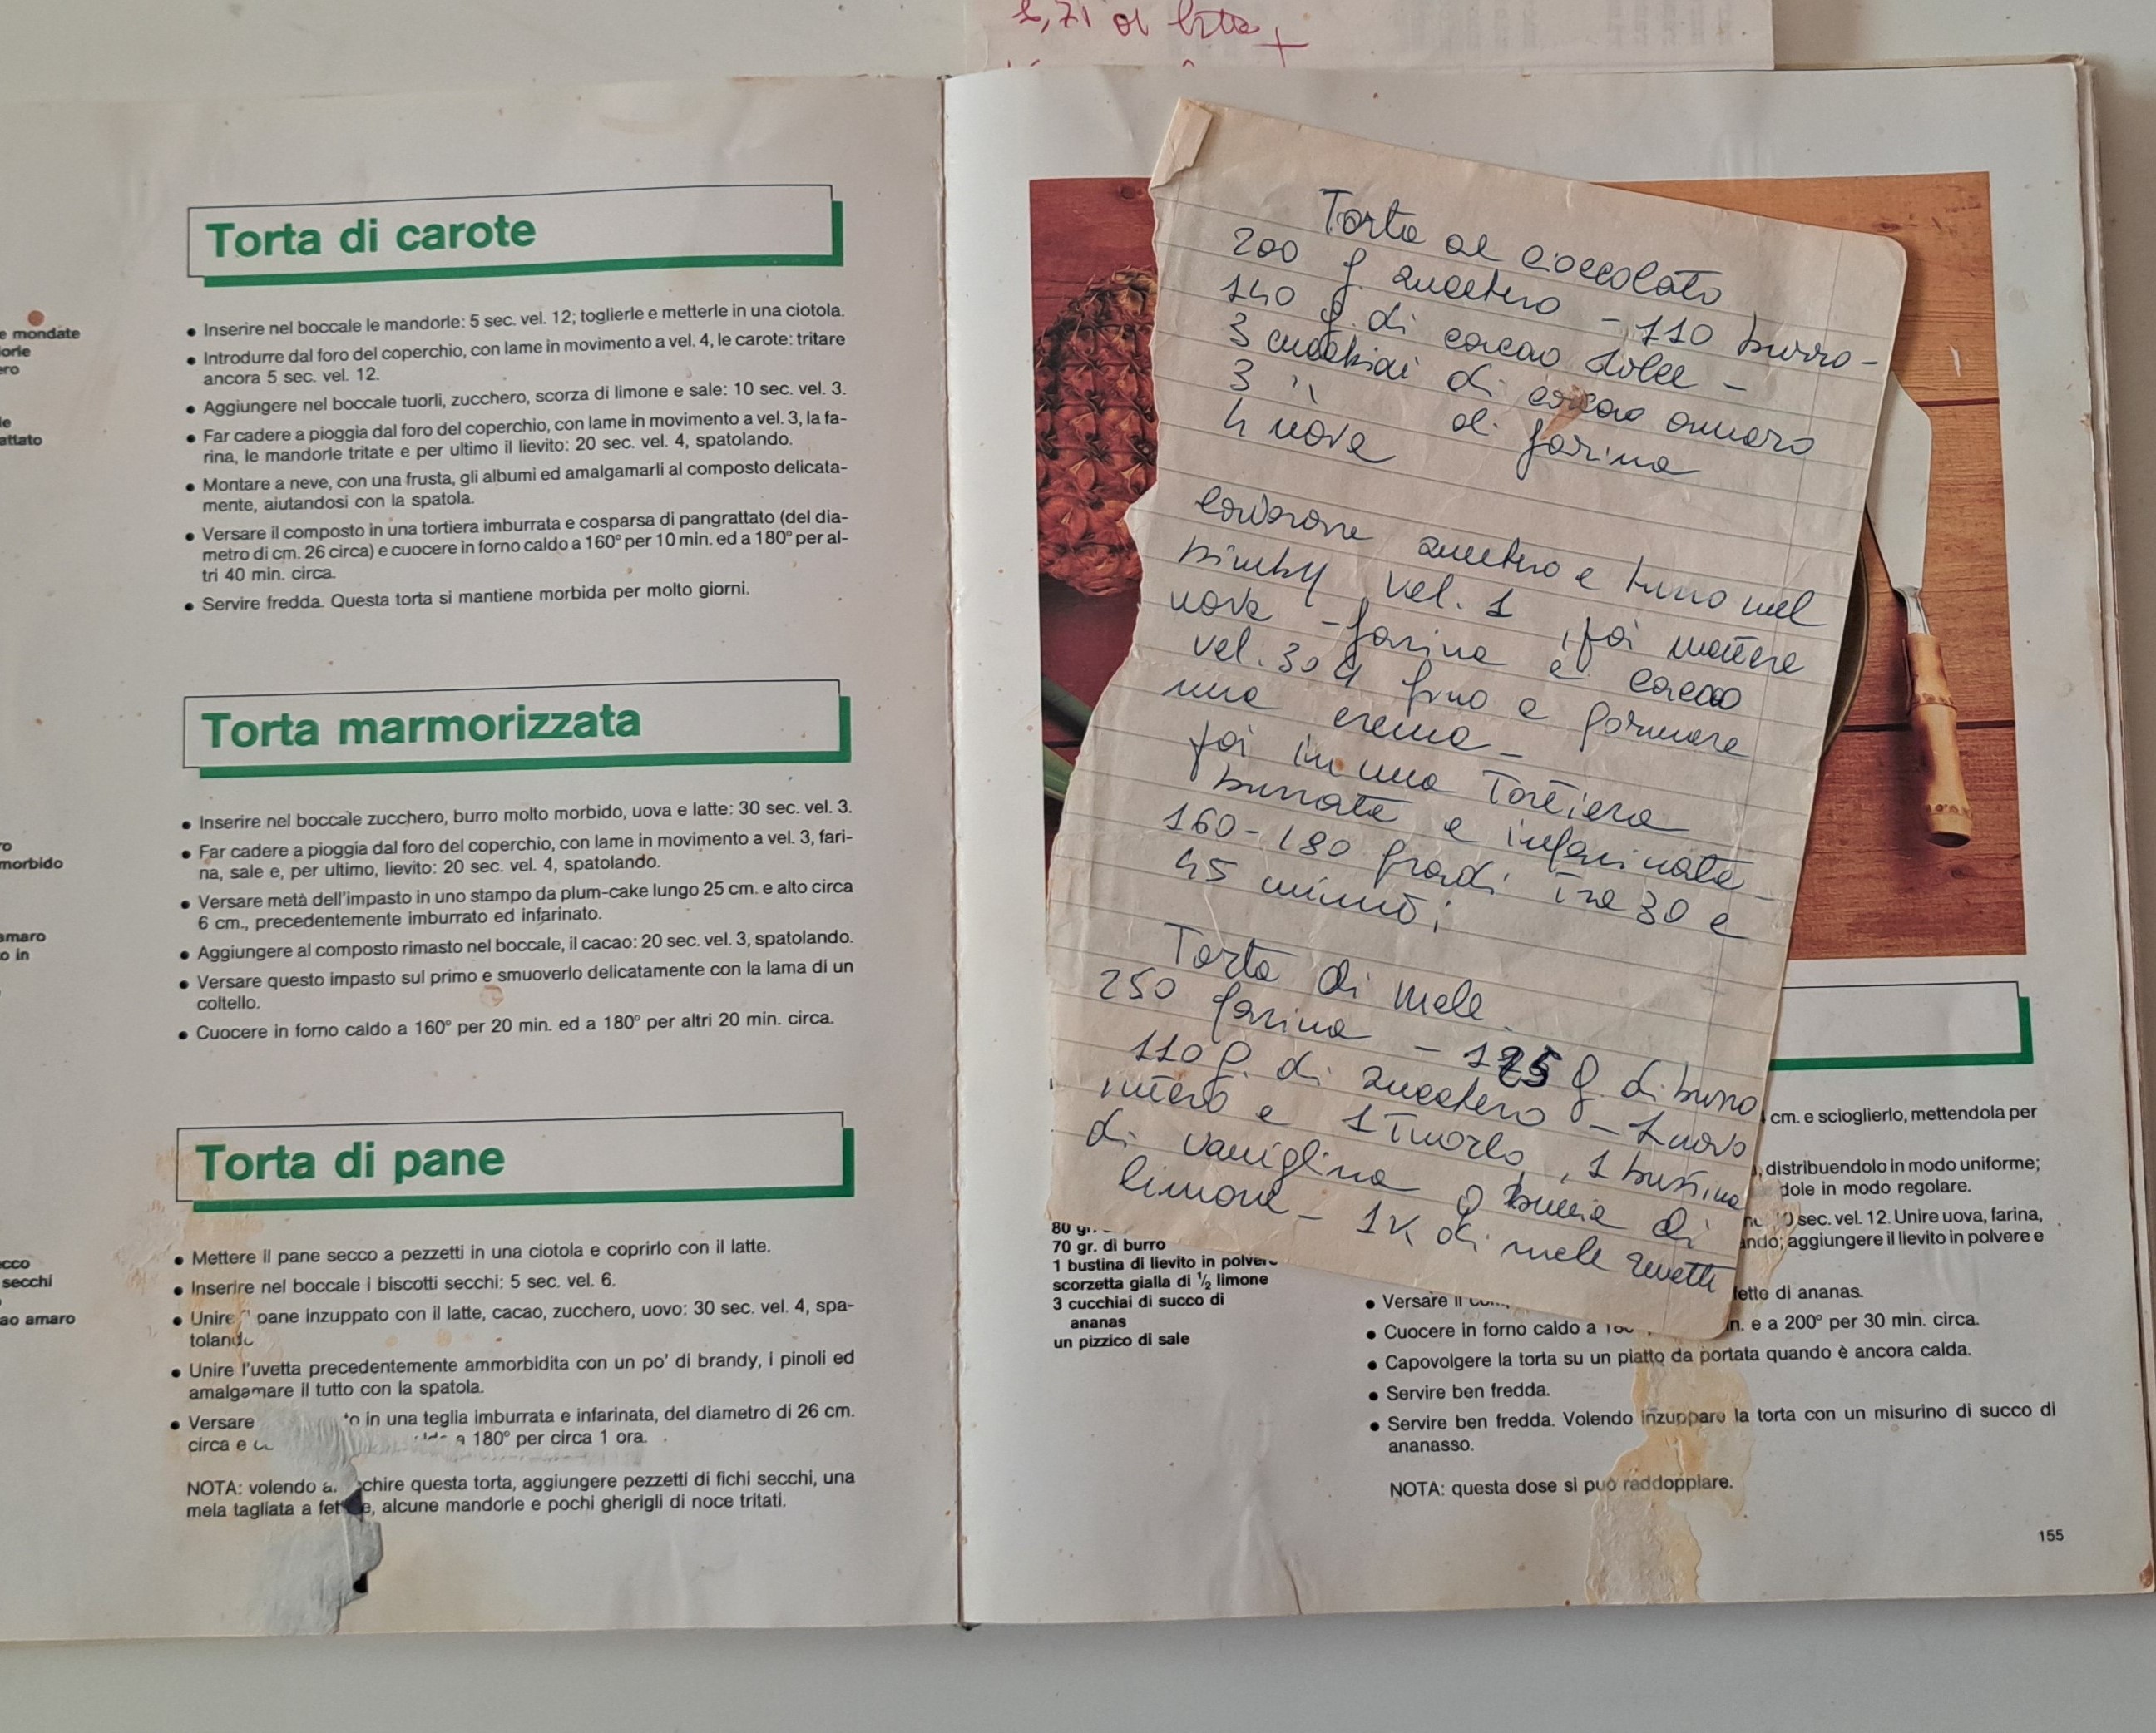 2,71 di latte +
e mondate
orle
ero
le
attato
ro
morbido
amaro
o in
cco
secchi
ao amaro
Torta di carote
● Inserire nel boccale le mandorle: 5 sec. vel. 12; toglierle e metterle in una ciotola.
● Introdurre dal foro del coperchio, con lame in movimento a vel. 4, le carote: tritare
ancora 5 sec. vel. 12.
● Aggiungere nel boccale tuorli, zucchero, scorza di limone e sale: 10 sec. vel. 3.
● Far cadere a pioggia dal foro del coperchio, con lame in movimento a vel. 3, la fa-
rina, le mandorle tritate e per ultimo il lievito: 20 sec. vel. 4, spatolando.
● Montare a neve, con una frusta, gli albumi ed amalgamarli al composto delicata-
mente, aiutandosi con la spatola.
● Versare il composto in una tortiera imburrata e cosparsa di pangrattato (del dia-
metro di cm. 26 circa) e cuocere in forno caldo a 160° per 10 min. ed a 180° per al-
tri 40 min. circa.
● Servire fredda. Questa torta si mantiene morbida per molto giorni.
Torta marmorizzata
● Inserire nel boccale zucchero, burro molto morbido, uova e latte: 30 sec. vel. 3.
● Far cadere a pioggia dal foro del coperchio, con lame in movimento a vel. 3, fari-
na, sale e, per ultimo, lievito: 20 sec. vel. 4, spatolando.
● Versare metà dell'impasto in uno stampo da plum-cake lungo 25 cm. e alto circa
6 cm., precedentemente imburrato ed infarinato.
● Aggiungere al composto rimasto nel boccale, il cacao: 20 sec. vel. 3, spatolando.
● Versare questo impasto sul primo e smuoverlo delicatamente con la lama di un
coltello.
● Cuocere in forno caldo a 160° per 20 min. ed a 180° per altri 20 min. circa.
Torta di pane
● Mettere il pane secco a pezzetti in una ciotola e coprirlo con il latte.
● Inserire nel boccale i biscotti secchi: 5 sec. vel. 6.
● Unire pane inzuppato con il latte, cacao, zucchero, uovo: 30 sec. vel. 4, spa-
tolando
● Unire l'uvetta precedentemente ammorbidita con un po' di brandy, i pinoli ed
amalgamare il tutto con la spatola.
● Versare in una teglia imburrata e infarinata, del diametro di 26 cm.
circa e a 180° per circa 1 ora.
NOTA: volendo chire questa torta, aggiungere pezzetti di fichi secchi, una
mela tagliata a fet e, alcune mandorle e pochi gherigli di noce tritati.
Torta al cioccolato
200 g. zucchero - 110 burro -
140 g. di cacao dolce -
3 cucchiai di cacao amaro
3 " di farina
4 uova
lavorare zucchero e burro nel
bimby vel. 1, poi mettere
uova - farina e cacao
vel. 3 o 4 fino e formare
una crema -
poi in una Tortiera
burrata e infarinata
160-180 gradi tra 30 e
45 minuti
Torta di mele
250 farina - 125 g. di burro
110 g. di zucchero - 1 uovo
intero e 1 tuorlo, 1 bustina
di vaniglina o buccia di
limone - 1 K di mele renette
cm. e scioglierlo, mettendola per
, distribuendolo in modo uniforme;
dole in modo regolare.
sec. vel. 12. Unire uova, farina,
ando; aggiungere il lievito in polvere e
80 gr.
70 gr. di burro
1 bustina di lievito in polvere
scorzetta gialla di ½ limone
3 cucchiai di succo di
ananas
un pizzico di sale
● Versare il fetto di ananas.
● Cuocere in forno caldo a n. e a 200° per 30 min. circa.
● Capovolgere la torta su un piatto da portata quando è ancora calda.
● Servire ben fredda.
● Servire ben fredda. Volendo inzuppare la torta con un misurino di succo di
ananasso.
NOTA: questa dose si può raddoppiare.
155